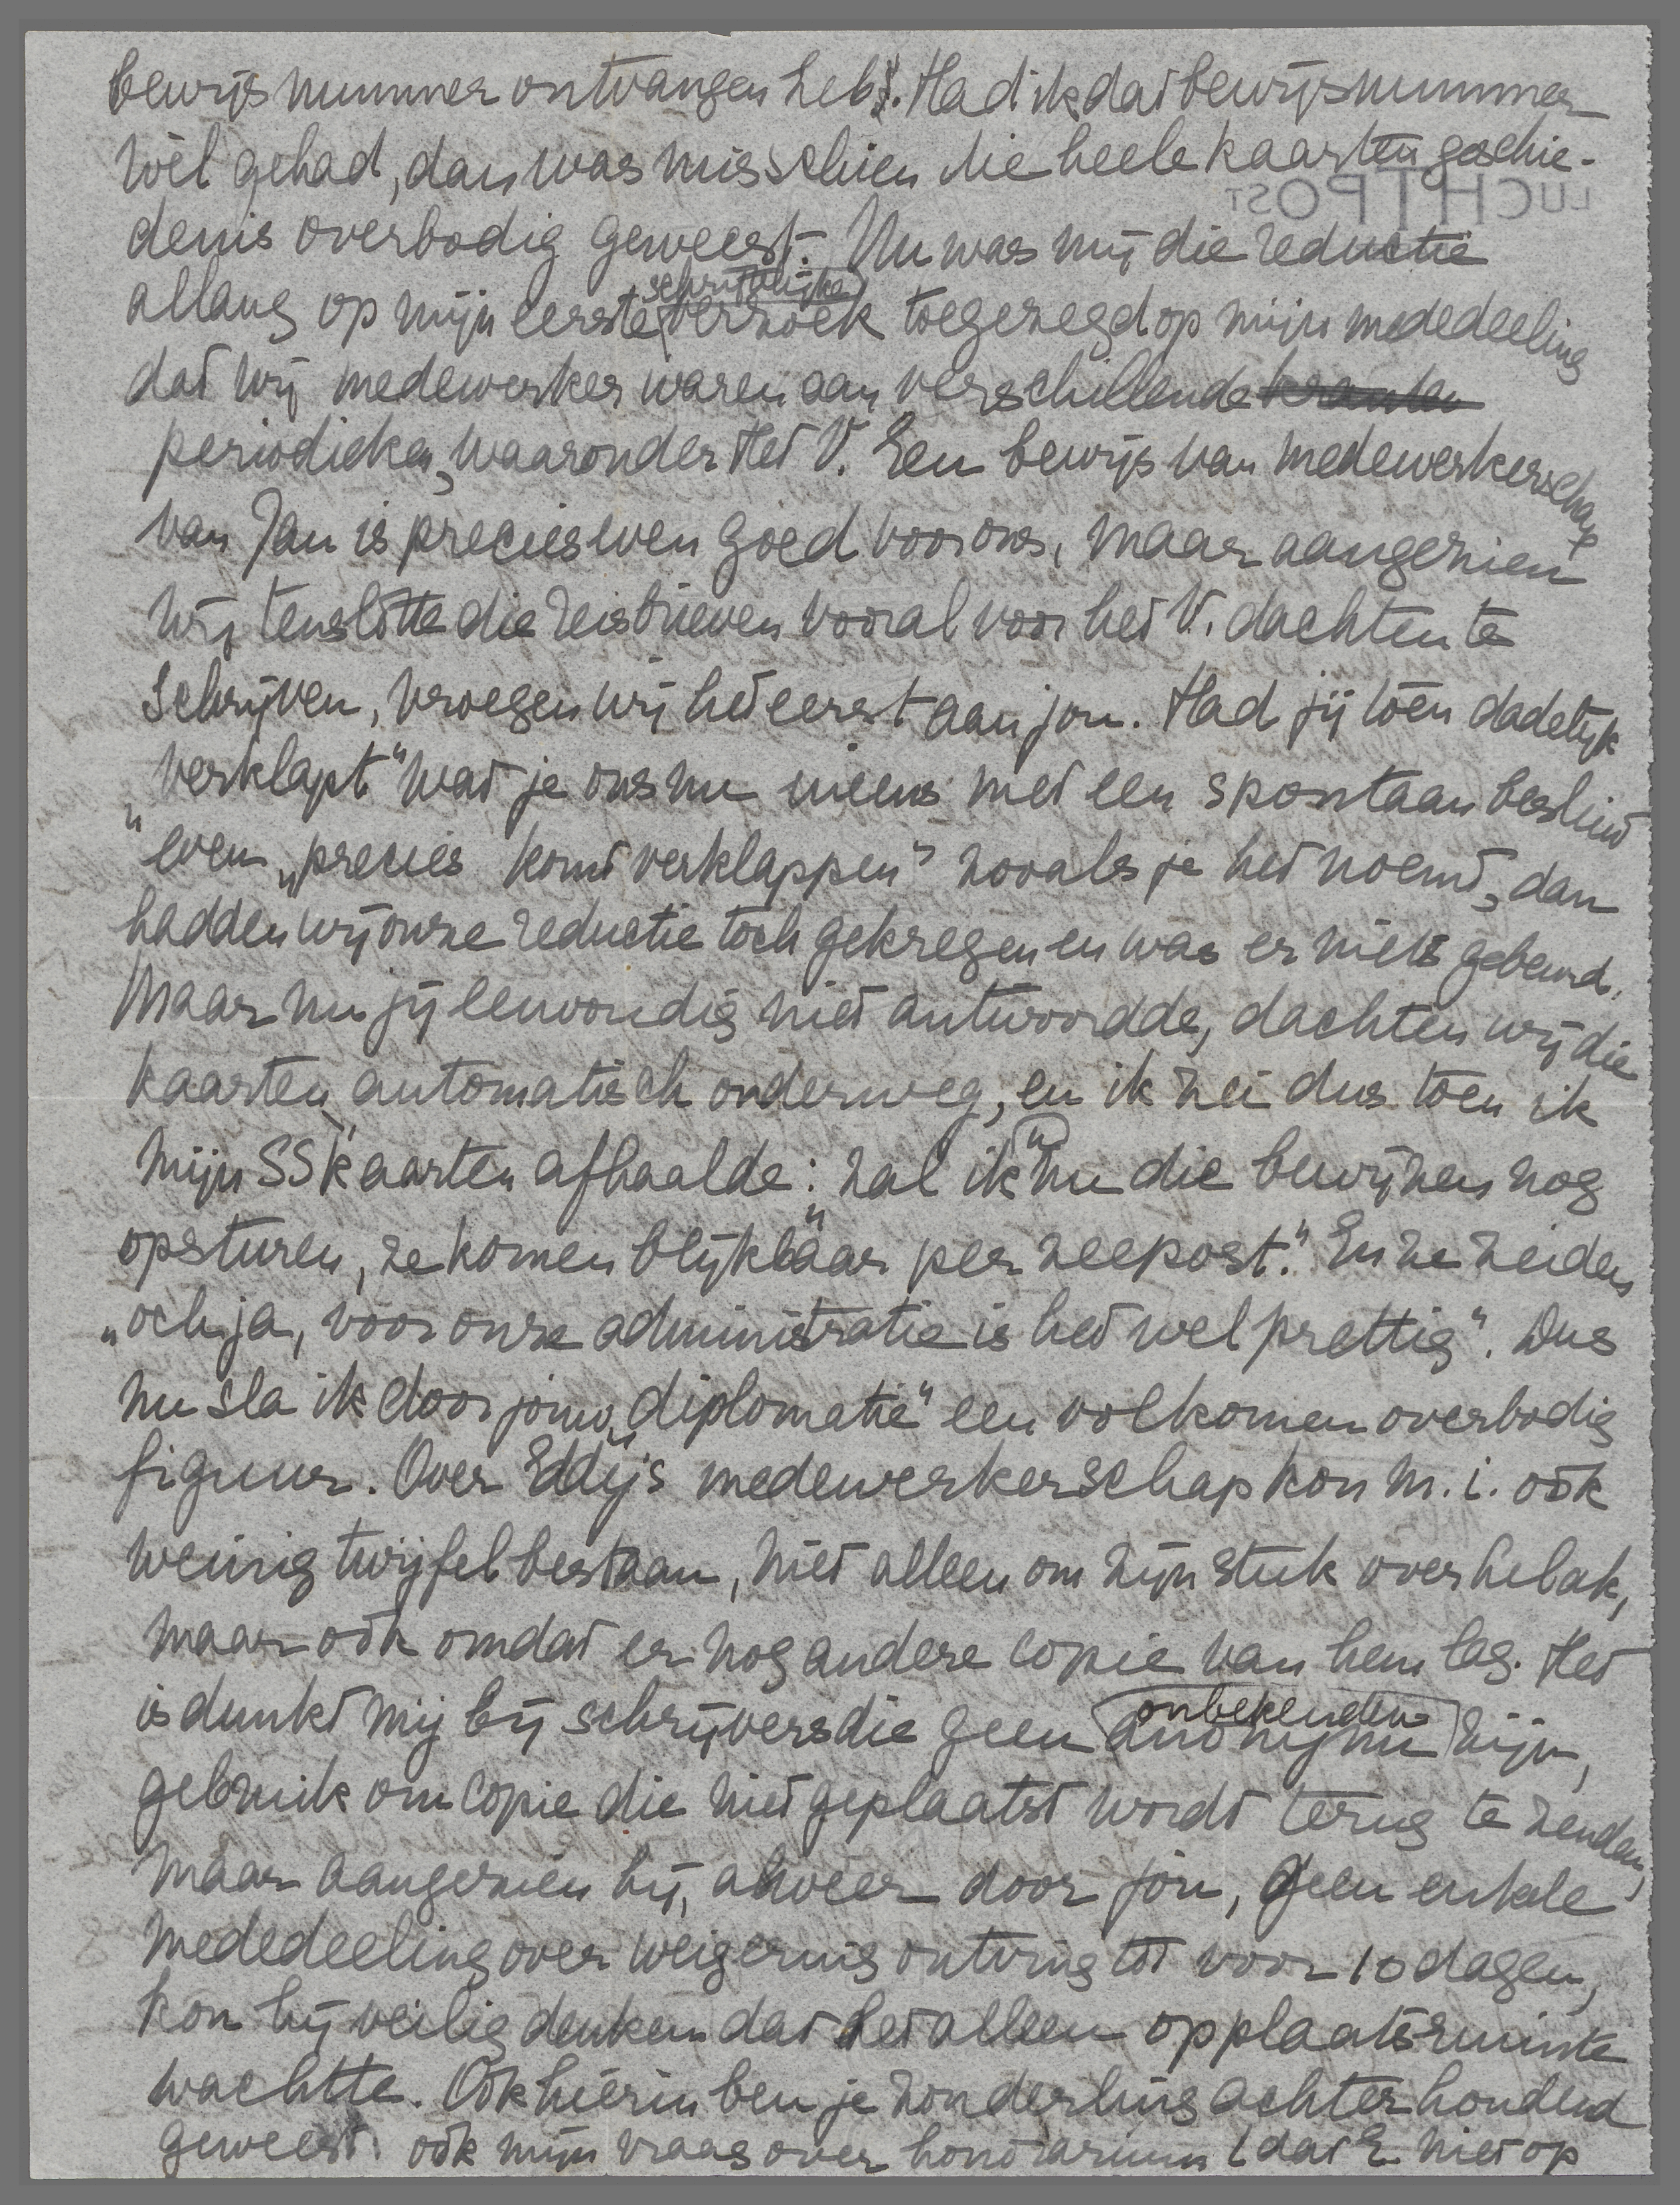 bewijsnummer ontvangen heb. Had ik dat bewijsnummer
wèl gehad, dan was misschien die heele kaarten geschie-
LUCHTPOST
denis overbodig geweest. Nu was mij die reductie
allang op mijn eerste schriftelijke verzoek toegezegd op mijn mededeeling
dat wij medewerker waren aan verschillende kranten
periodieken, waaronder Het V. Een bewijs van medewerkerschap
van Jan is precies even goed voor ons, maar aangezien
wij tenslotte die reisbrieven vooral voor het V. dachten te
schrijven, vroegen wij het eerst aan jou. Had jij tóen dadelijk
„verklapt" wat je ons nu ineens met een spontaan besluit
„even „precies komt verklappen" zooals je het noemt, dan
hadden wij onze reductie tóch gekregen en was er niets gebeurd.
Maar nu jij eenvoudig niet antwoordde, dachten wij die
kaarten automatisch onderweg, en ik zei dus toen ik
mijn SS kaarten afhaalde: „zal ik u nu die bewijzen nog
opsturen, ze komen blijkbaar per zeepost." En ze zeiden
„och ja, voor onze administratie is het wel prettig". Dus
nu sla ik door jouw „diplomatie" een volkomen overbodig
figuur. Over Eddy's medewerkerschap kon m.i. oók
weinig twijfel bestaan, niet alleen om zijn stuk over Lebak,
maar oók omdat er nog andere copie van hem lag. Het
is dunkt mij bij schrijvers die geen anonijme onbekenden zijn,
gebruik om copie die niet geplaatst wordt terug te zenden,
maar aangezien hij, alweer door jou, geen enkele
mededeeling over weigering ontving tot voor 10 dagen,
kon hij veilig denken dat het alleen op plaatsruimte
wachtte. Oók hierin ben je zonderling achterhoudend
geweest. oók mijn vraag over honorarium (dat E. niet op